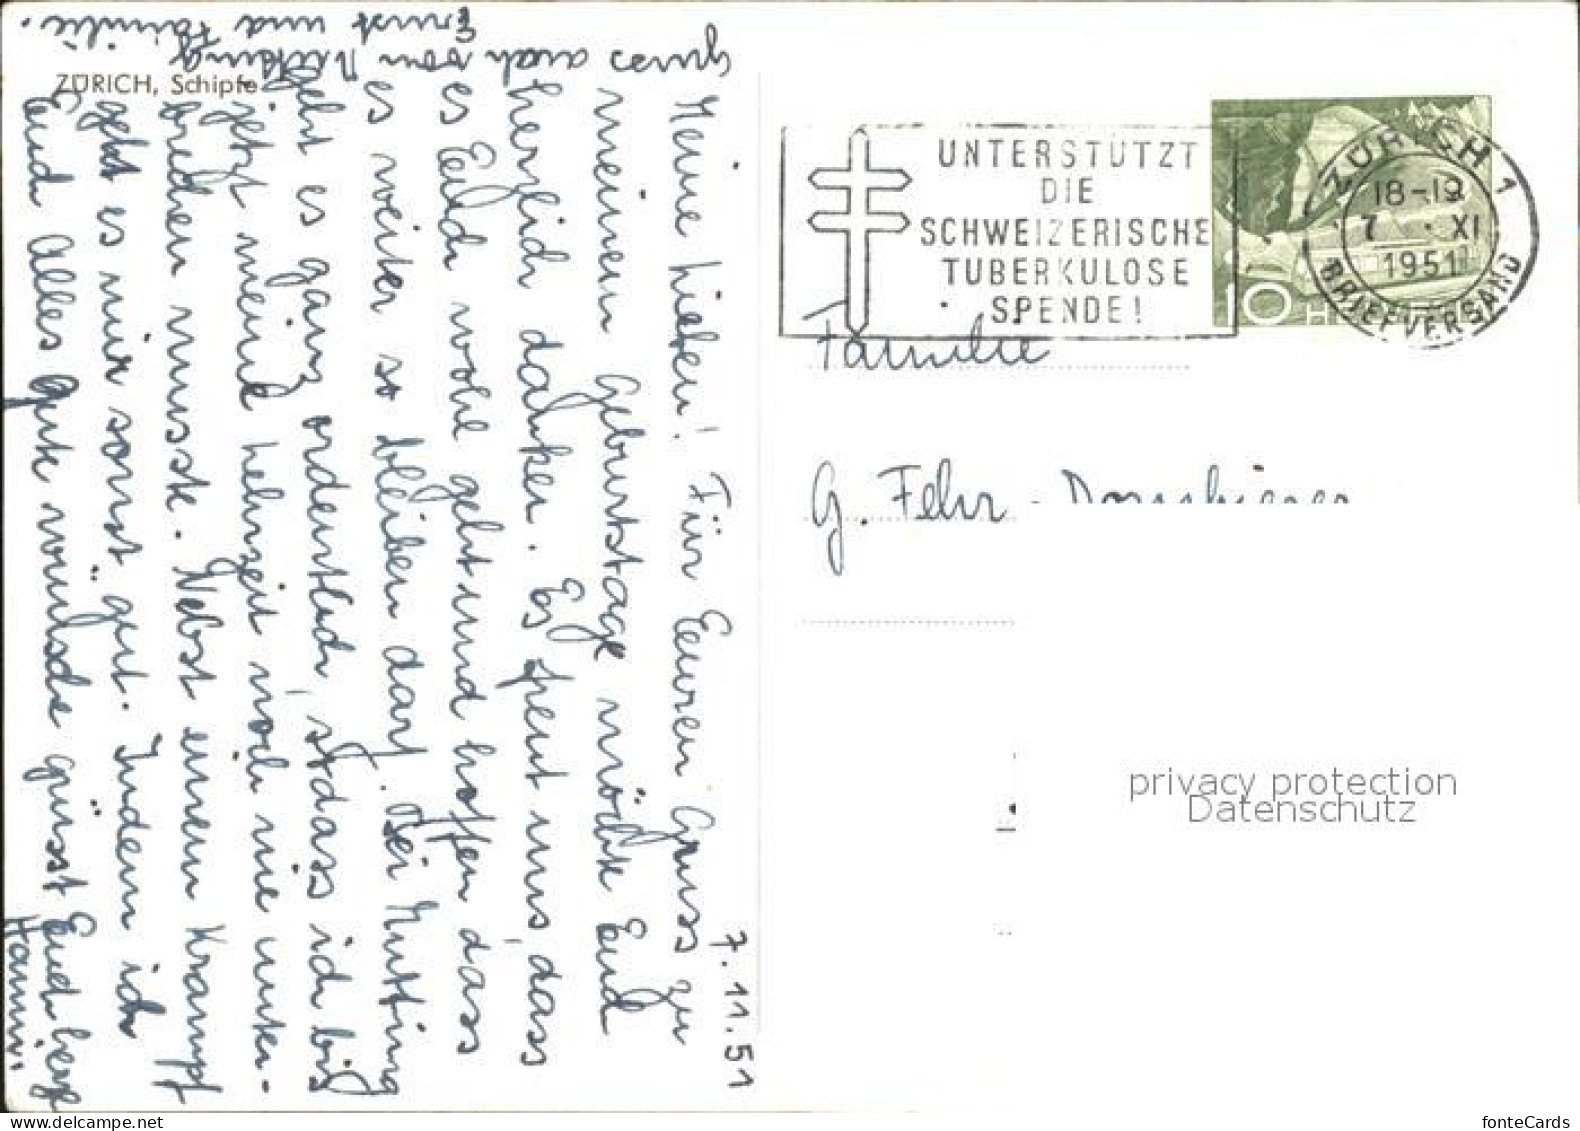 ZÜRICH, Schipfe
7.11.51
Meine Lieben! Für Euren Gruss zu
meinem Geburtstage möchte Euch
herzlich danken. Es freut uns, dass
es Euch wohl geht und hoffen, dass
es weiter so bleiben darf. Bei Mutting
geht es ganz ordentlich, sodass ich bis
jetzt meine Lehrzeit noch nie unter-
brechen musste. Nebst einem Krampf
geht es mir sonst gut. Indem ich
Euch Alles Gute wünsche grüsst Euch herzl
Hanni.
Gruss auch von Mutting
Ernst und Familie.
UNTERSTÜTZT
DIE
SCHWEIZERISCHE
TUBERKULOSE
SPENDE!
ZÜRICH 1
18-19
7. XI
1951
BRIEFVERSAND
10 HELVETIA
Familie
G. Fehr -
privacy protection
Datenschutz
fonteCards